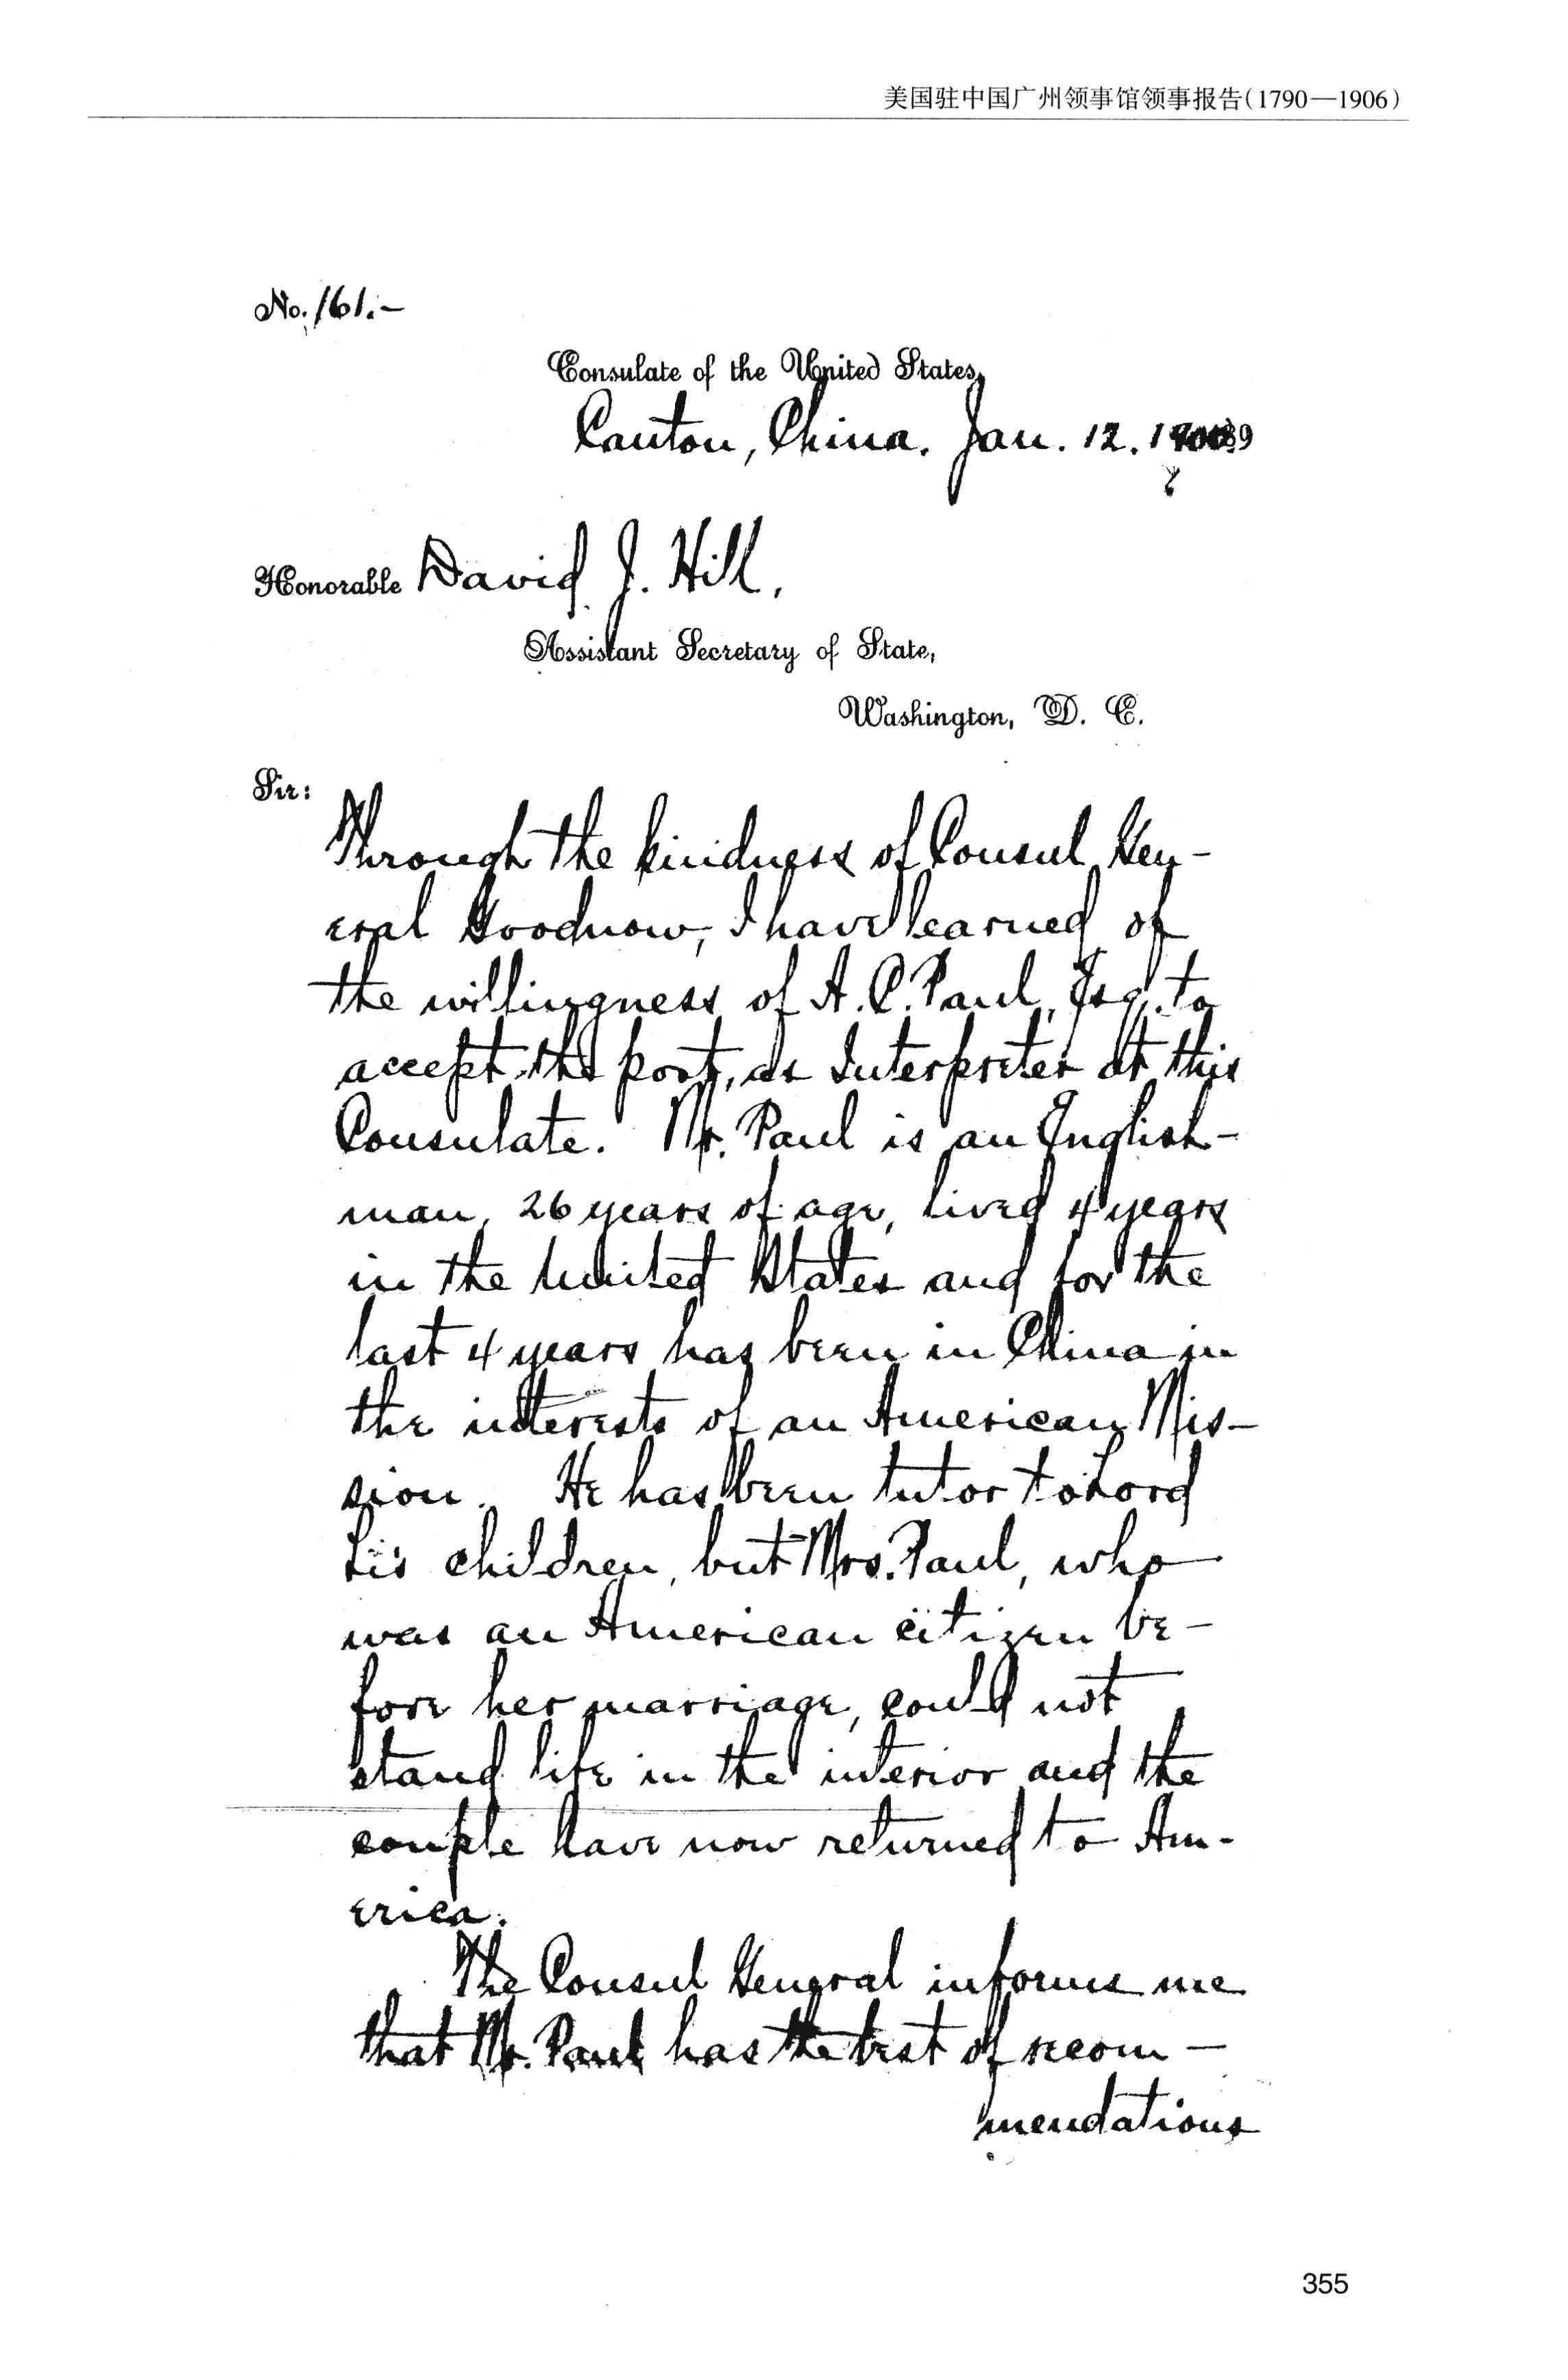 美国驻中国广州领事馆领事报告(1790—1906)
No. 161.-
Consulate of the United States,
Canton, China. Jan. 12. 1900
Honorable David J. Hill,
Assistant Secretary of State,
Washington, D. C.
Sir:
Through the kindness of Consul Gen-
eral Goodnow, I have learned of
the willingness of A. C. Paul, Esq. to
accept the post, as Interpreter at this
Consulate. Mr. Paul is an English-
man, 26 years of age, lived 4 years
in the United States and for the
last 4 years has been in China in
the interests of an American Mis-
sion. He has been tutor to Lord
Li's children, but Mrs. Paul, who
was an American citizen be-
fore her marriage, could not
stand life in the interior and the
couple have now returned to Am-
erica.
The Consul General informs me
that Mr. Paul has the best of recom-
mendations
355